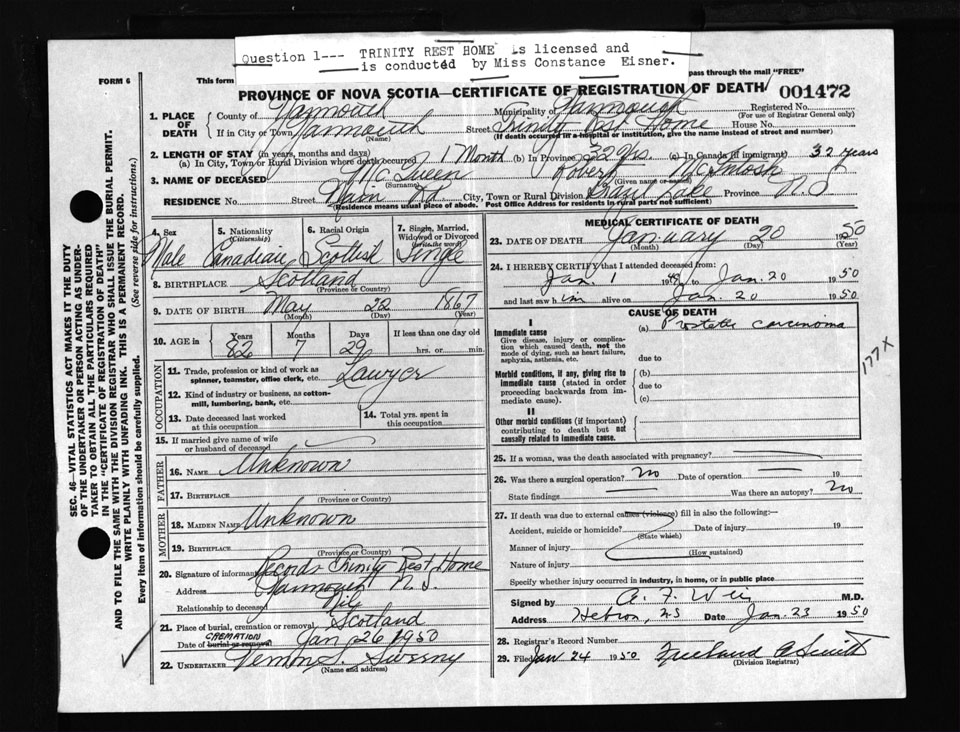 Question 1--- TRINITY REST HOME is licensed and
is conducted by Miss Constance Eisner.
FORM 6
This form
pass through the mail "FREE"
PROVINCE OF NOVA SCOTIA—CERTIFICATE OF REGISTRATION OF DEATH 001472
1. PLACE OF DEATH
County of Yarmouth Municipality of Yarmouth Registered No.
(For use of Registrar General only)
If in City or Town Yarmouth Street Trinity Rest Home House No.
(Name) (If death occurred in a hospital or institution, give the name instead of street and number)
2. LENGTH OF STAY (in years, months and days)
(a) In City, Town or Rural Division where death occurred 1 Month (b) In Province 32 Yrs. (c) In Canada (if immigrant) 32 years
3. NAME OF DECEASED McQueen Robert McIntosh
(Surname) (Given name or names)
RESIDENCE No. Street Main Rd. City, Town or Rural Division Lake Province N.S
(Residence means usual place of abode. Post Office Address for residents in rural parts not sufficient)
4. Sex 5. Nationality (Citizenship) 6. Racial Origin 7. Single, Married, Widowed or Divorced (write the word)
Male Canadian Scottish Single
8. BIRTHPLACE Scotland
(Province or Country)
9. DATE OF BIRTH May 22 1867
(Month) (Day) (Year)
10. AGE in Years Months Days If less than one day old
82 7 29 hrs. or min.
OCCUPATION
11. Trade, profession or kind of work as spinner, teamster, office clerk, etc. Lawyer
12. Kind of industry or business, as cotton-mill, lumbering, bank, etc.
13. Date deceased last worked at this occupation
14. Total yrs. spent in this occupation
15. If married give name of wife or husband of deceased
FATHER
16. NAME Unknown
17. BIRTHPLACE
(Province or Country)
MOTHER
18. MAIDEN NAME Unknown
19. BIRTHPLACE
(Province or Country)
20. Signature of informant Records Trinity Rest Home
Address Yarmouth N.S.
Relationship to deceased Nil
21. Place of burial, cremation or removal Scotland
CREMATION
Date of burial or removal Jan 26 1950
22. UNDERTAKER Vernon S. Sweeny
(Name and address)
MEDICAL CERTIFICATE OF DEATH
23. DATE OF DEATH January 20 1950
(Month) (Day) (Year)
24. I HEREBY CERTIFY that I attended deceased from:
Jan. 1 to Jan. 20 1950
and last saw him alive on Jan. 20 1950
CAUSE OF DEATH
I
Immediate cause (a) Prostate carcinoma
Give disease, injury or complication which caused death, not the mode of dying, such as heart failure, asphyxia, asthenia, etc.
due to
177 X
Morbid conditions, if any, giving rise to immediate cause (stated in order proceeding backwards from immediate cause).
(b)
due to
(c)
II
Other morbid conditions (if important) contributing to death but not causally related to immediate cause.
25. If a woman, was the death associated with pregnancy?
26. Was there a surgical operation? no Date of operation 19
State findings Was there an autopsy? no
27. If death was due to external causes (violence) fill in also the following:—
Accident, suicide or homicide? Date of injury 19
(State which)
Manner of injury
(How sustained)
Nature of injury
Specify whether injury occurred in industry, in home, or in public place
Signed by A. F. Weir M.D.
Address Hebron, N.S Date Jan. 23 1950
28. Registrar's Record Number
29. Filed Jan 24 1950 Smith
(Division Registrar)
SEC. 46—VITAL STATISTICS ACT MAKES IT THE DUTY
OF THE UNDERTAKER OR PERSON ACTING AS UNDER-
TAKER TO OBTAIN ALL THE PARTICULARS REQUIRED
IN THE "CERTIFICATE OF REGISTRATION OF DEATH"
AND TO FILE THE SAME WITH THE DIVISION REGISTRAR WHO SHALL ISSUE THE BURIAL PERMIT.
WRITE PLAINLY WITH UNFADING INK. THIS IS A PERMANENT RECORD.
Every item of information should be carefully supplied. (See reverse side for instructions.)